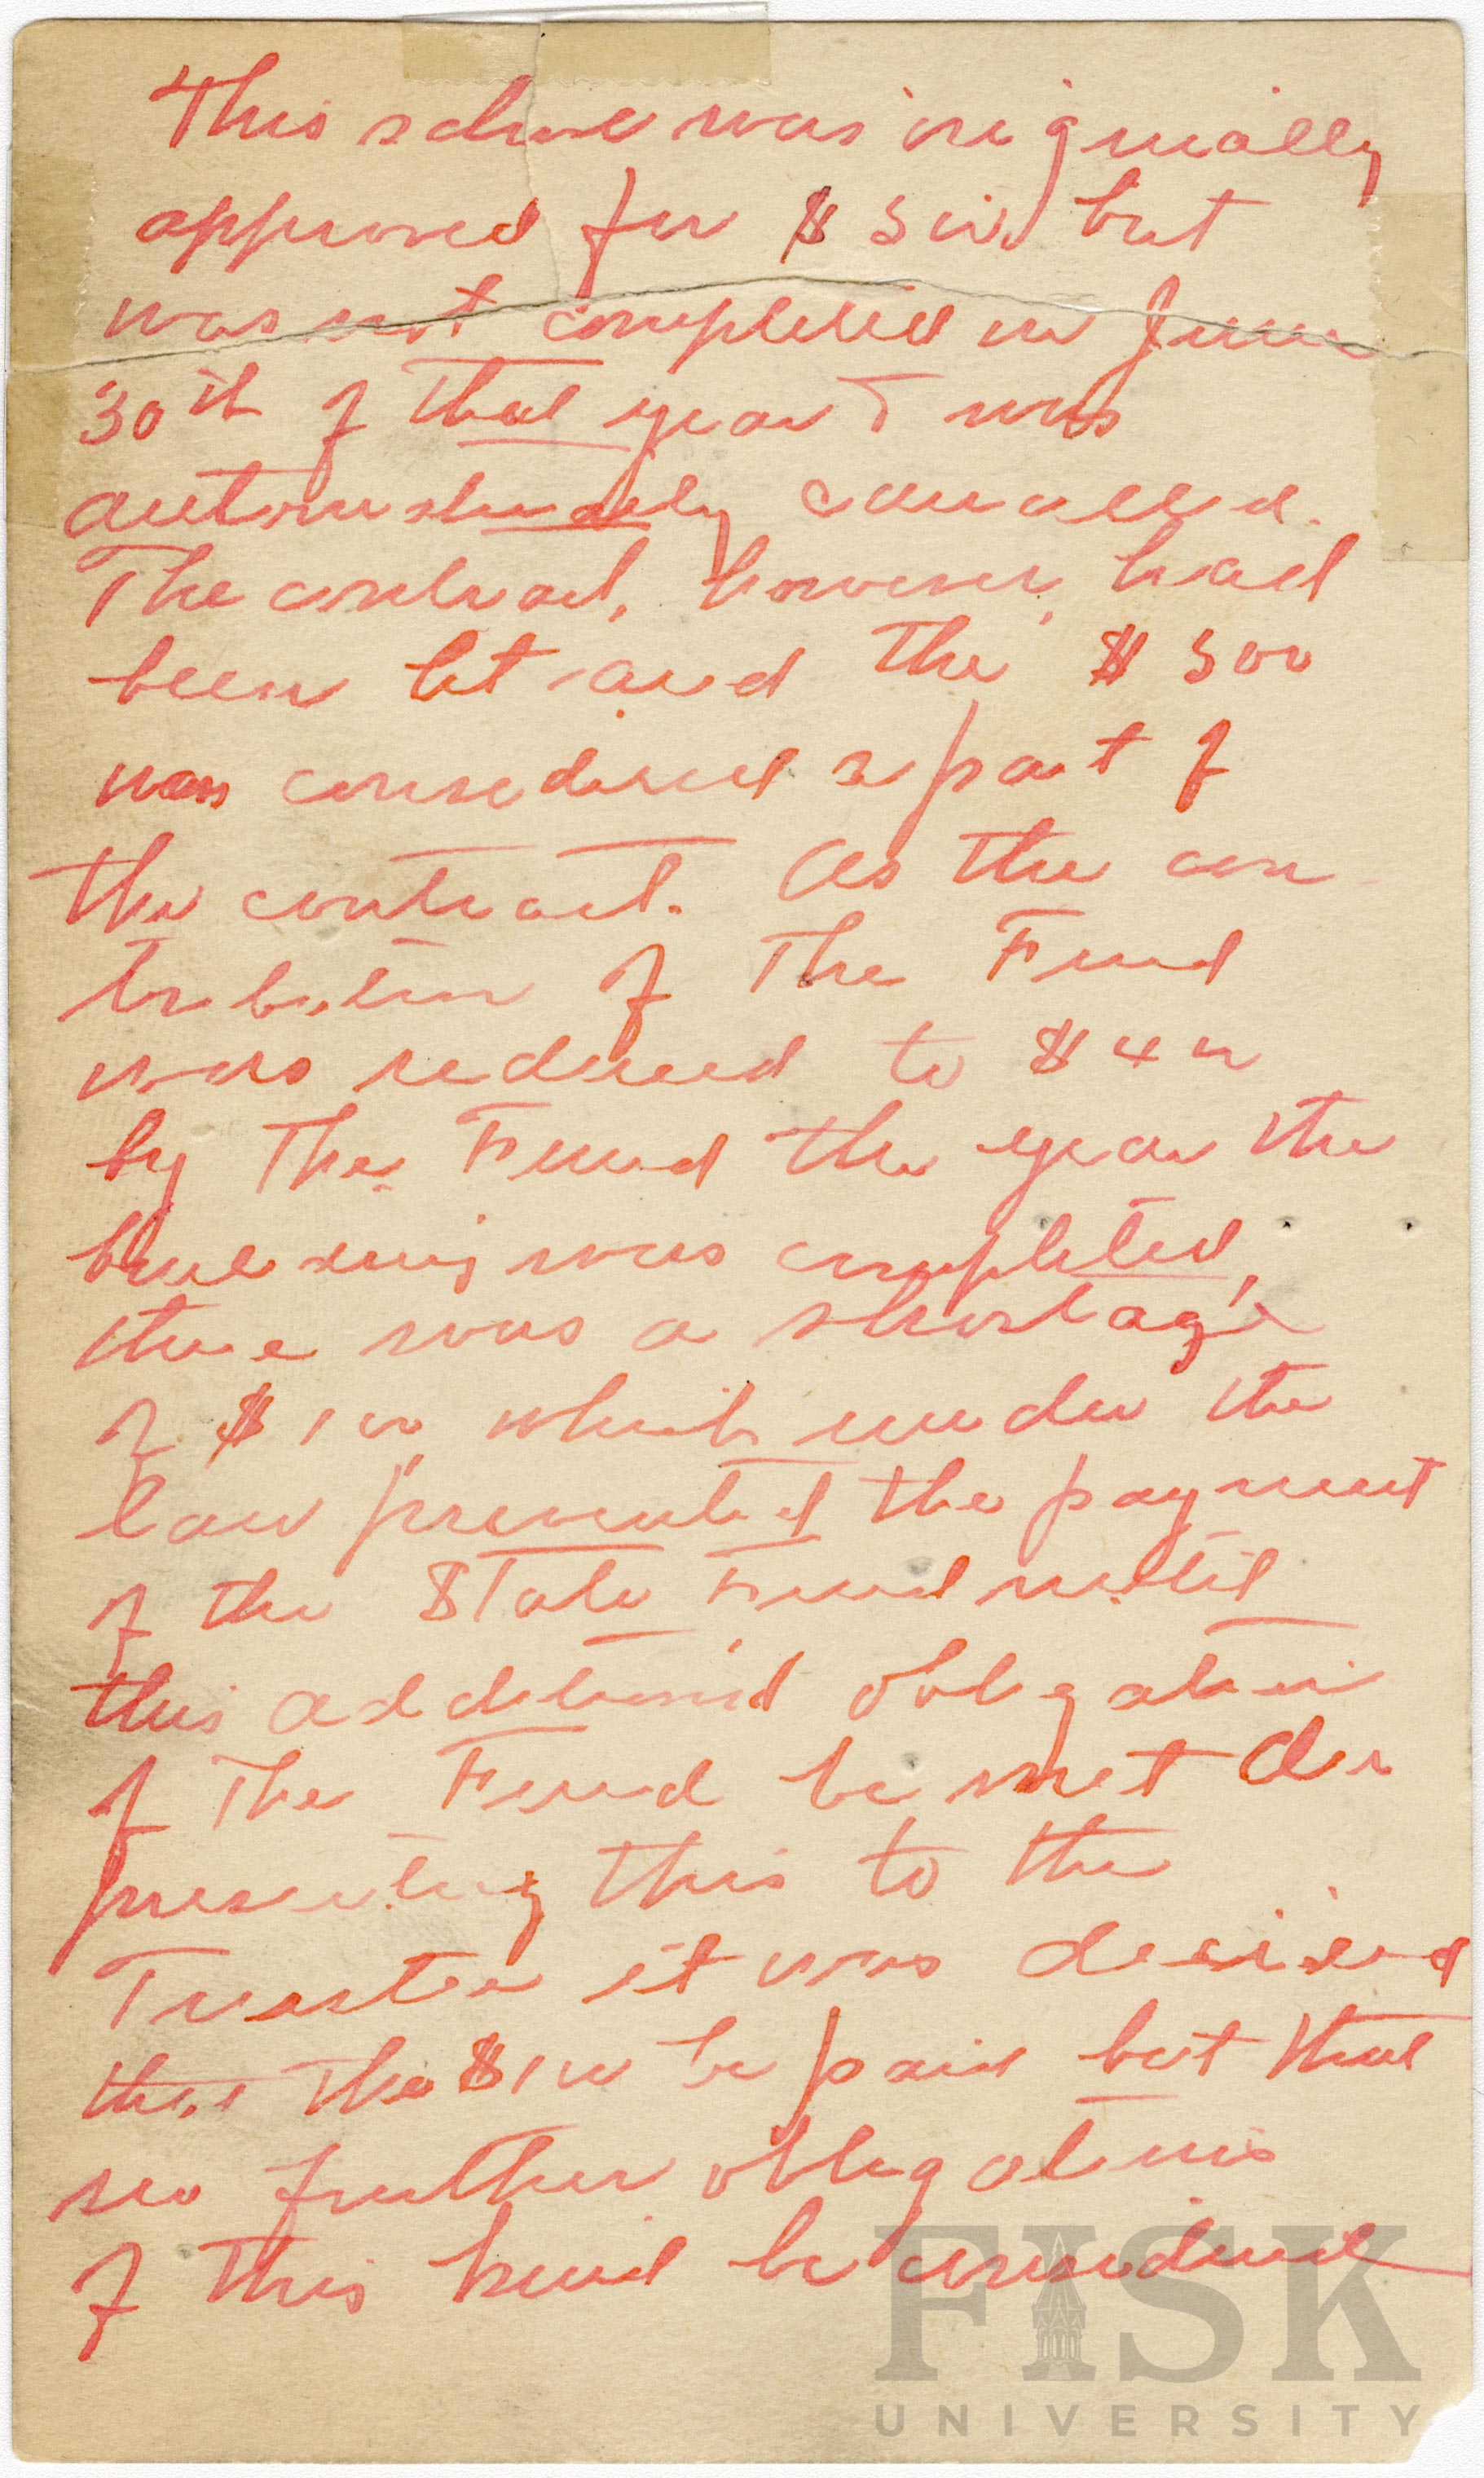 This school was originally
approved for $500 but
was not completed on June
30th of that year & was
automatically cancelled.
The contract, however, had
been let and the $500
was considered a part of
the contract. As the con-
tribution of The Fund
was reduced to $400
by The Fund the year the
building was completed,
there was a shortage
of $100 which under the
law prevented the payment
of the State Fund until
this additional obligation
of The Fund be met On
presenting this to the
Trustee it was desired
that the $100 be paid but that
no further obligations
of this kind be considered
FISK
UNIVERSITY